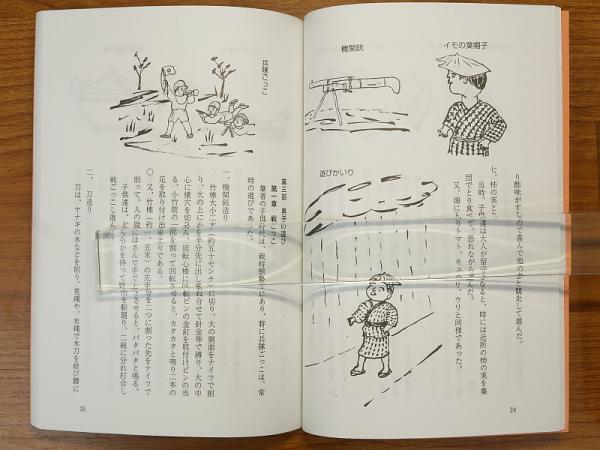 イモの葉帽子
機関銃
遊びかいり
り酢味がするので喜んで他の子と競走して遊んだ。
七、柿の実とり
当時、子供達は大人が留守になると、時には近所の柿の実を集
団でとり食べて、恐れながら遊んだ。
又、畑になるトマト、キュウリ、ウリと同様であった。
24
兵隊ごっこ
第三部 男子の遊び
第一章 戦ごっこ
筆者の子供時代は、戦時態勢にあり、特に兵隊ごっこは、常
時の遊びであった。
一、機関銃造り
竹棒大小二本（約五十センチ）に切り、大の側面をナイフで削
り、大の上に小を半分先に出し重ね合せて針金等で縛り、大の中
心に横穴を切込み、回転心棒に回転ピンの金釘を取付けピンの当
る、小竹筒の一部を割って回転させると、カタカタと鳴る二本の
足を取り付け出来上りである。
〇 又、竹棒（約一、五米）の先半分を二つに割った先をナイフで
削って、人の股にはさんで手で上下させると、パタパタと鳴る。
子供達は、どちらかを持って野山を駆廻り、二組に分れ打合し
戦ごっこし遊んだ。
二、刀造り
刀は、ヤナギの木などを削り、荒縄や、布縄で木刀を結び腰に
25